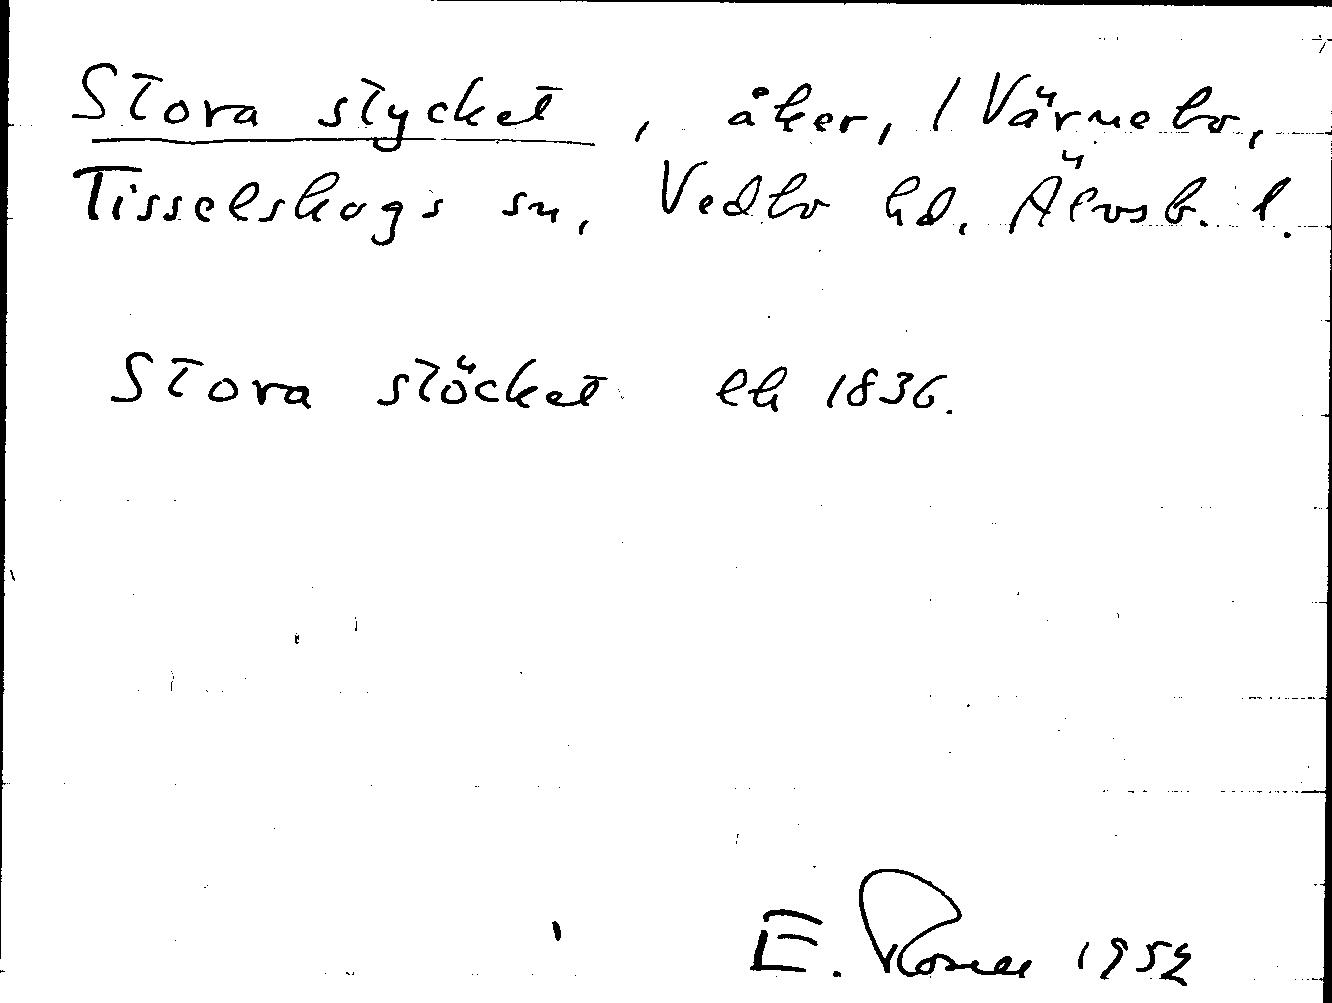 Stora stycket, åker, / Värnebo,
Tisselskogs sn, Vedbo hd. Älvsb. l.
Stora stöcket lh 1836.
E. 1952